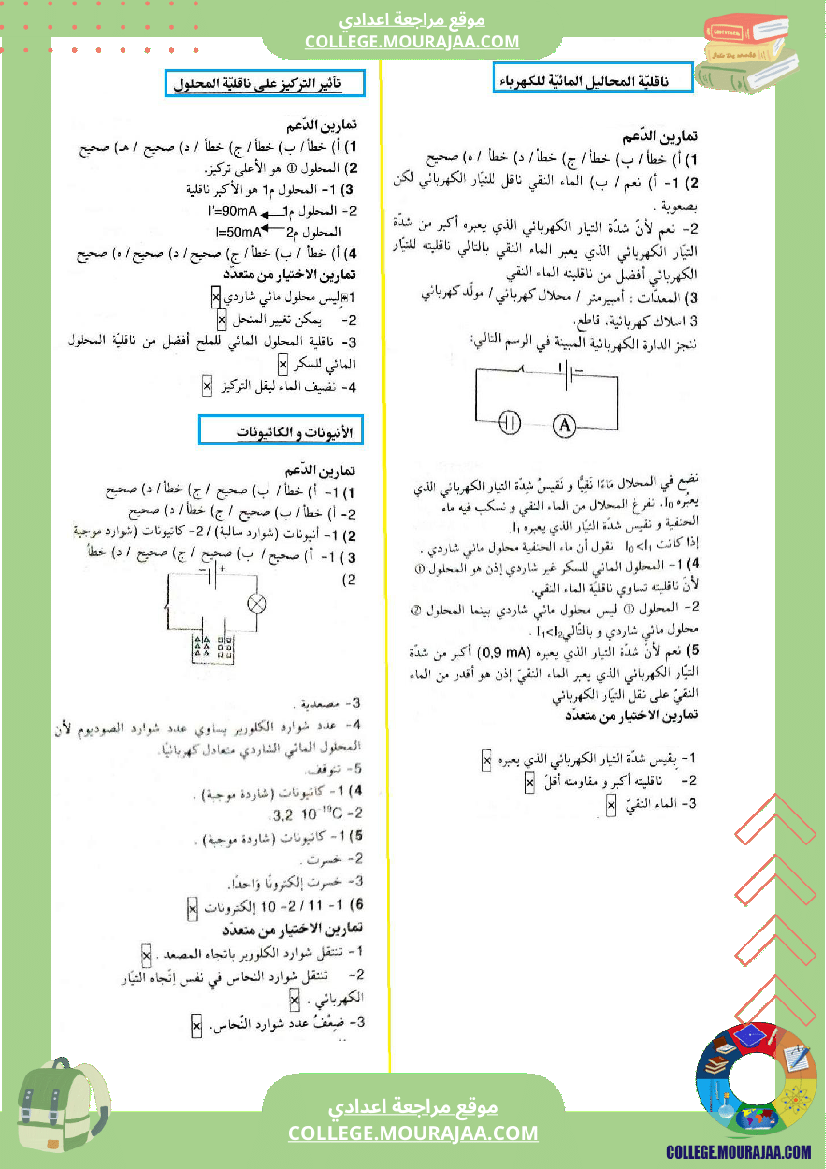 موقع مراجعة اعدادي
COLLEGE.MOURAJAA.COM
ناقليّة المحاليل المائيّة للكهرباء
تمارين الدّعم
1) أ) خطأ/ ب) خطأ/ ج) خطأ/ د) خطأ / ه) صحيح
2) 1- أ) نعم / ب) الماء النقي ناقل للتيّار الكهربائي لكن
بصعوبة .
2- نعم لأنّ شدّة التيار الكهربائي الذي يعبره أكبر من شدّة
التيّار الكهربائي الذي يعبر الماء النقي بالتالي ناقليته للتيّار
الكهربائي أفضل من ناقليته الماء النقي
3) المعدّات : أمبيرمتر / محلال كهربائي / مولّد كهربائي
3 اسلاك كهربائية، قاطع.
ننجز الدارة الكهربائية المبينة في الرسم التالي:
A
نضع في المحلال مَاءًا نَقِيًّا و نَقيسُ شِدّة التيار الكهربائي الذي
يعبُره I₀. نفرغ المحلال من الماء النقي و نسكب فيه ماء
الحنفية و نقيس شدّة التيّار الذي يعبره I₁
إذا كانت I₀<I₁ نقول أن ماء الحنفية محلول مائي شاردي .
4) 1- المحلول المائي للسكر غير شاردي إذن هو المحلول ①
لأنّ ناقليته تساوي ناقليّة الماء النقي.
2- المحلول ① ليس محلول مائي شاردي بينما المحلول ②
محلول مائي شاردي و بالتّالي I₁<I₂ .
5) نعم لأنّ شدّة التيار الذي يعبره (0,9 mA) أكبر من شدّة
التيّار الكهربائي الذي يعبر الماء النقيّ إذن هو أقدر من الماء
النقيّ على نقل التيّار الكهربائي
تمارين الاختيار من متعدّد
1- يقيس شدّة التيار الكهربائي الذي يعبره ×
2- ناقليته أكبر و مقاومته أقلّ ×
3- الماء النقيّ ×
تأثير التركيز على ناقليّة المحلول
تمارين الدّعم
1) أ) خطأ/ ب) خطأ/ ج) خطأ / د) صحيح / هـ) صحيح
2) المحلول ① هو الأعلى تركيز.
3) 1- المحلول م1 هو الأكبر ناقلية
2- المحلول م1 I'=90mA
المحلول م2 I=50mA
4) أ) خطأ/ ب) خطأ/ ج) صحيح/ د) صحيح/ ه) صحيح
تمارين الاختيار من متعدّد
1- ليس محلول مائي شاردي ×
2- يمكن تغيير المنحل ×
3- ناقلية المحلول المائي للملح أفضل من ناقليّة المحلول
المائي للسكر ×
4- نضيف الماء ليقل التركيز ×
الأنيونات و الكاتيونات
تمارين الدّعم
1) 1- أ) خطأ/ ب) صحيح / ج) خطأ/ د) صحيح
2- أ) خطأ/ ب) صحيح / ج) خطأ/ د) صحيح
2) 1- أنيونات (شوارد سالبة)/ 2- كاتيونات (شوارد موجبة
3 ) 1- أ) صحيح/ ب) صحيح / ج) صحيح / د) خطأ
2)
- +
3- مصعدية .
4- عدد شوارد الكلورير يساوي عدد شوارد الصوديوم لأن
المحلول المائي الشاردي متعادل كهربائيًا.
5- تتوقف.
4) 1- كاتيونات (شاردة موجبة) .
2- 3,2 10⁻¹⁹C.
5) 1- كاتيونات (شاردة موجبة) .
2- خسرت .
3- خسرت إلكترونًا وَاحدًا.
6) 1- 11 / 2- 10 إلكترونات ×
تمارين الاختيار من متعدّد
1- تنتقل شوارد الكلورير باتجاه المصعد . ×
2- تنتقل شوارد النحاس في نفس إتّجاه التيّار
الكهربائي . ×
3- ضِعْفُ عدد شوارد النّحاس. ×
موقع مراجعة اعدادي
COLLEGE.MOURAJAA.COM
COLLEGE.MOURAJAA.COM